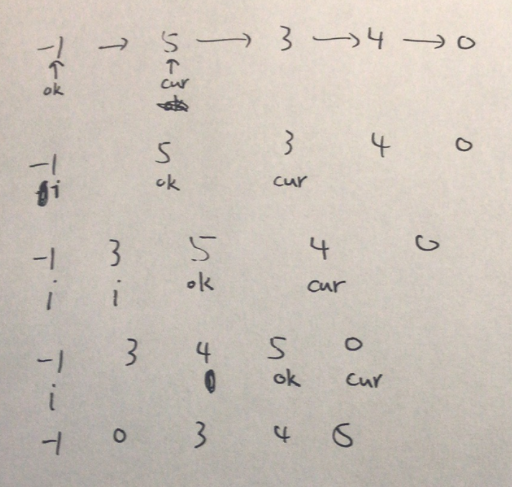 -1 → 5 → 3 → 4 → 0
↑ ↑
ok cur
-1 5 3 4 0
i ok cur
-1 3 5 4 0
i i ok cur
-1 3 4 5 0
ok cur
i
-1 0 3 4 5